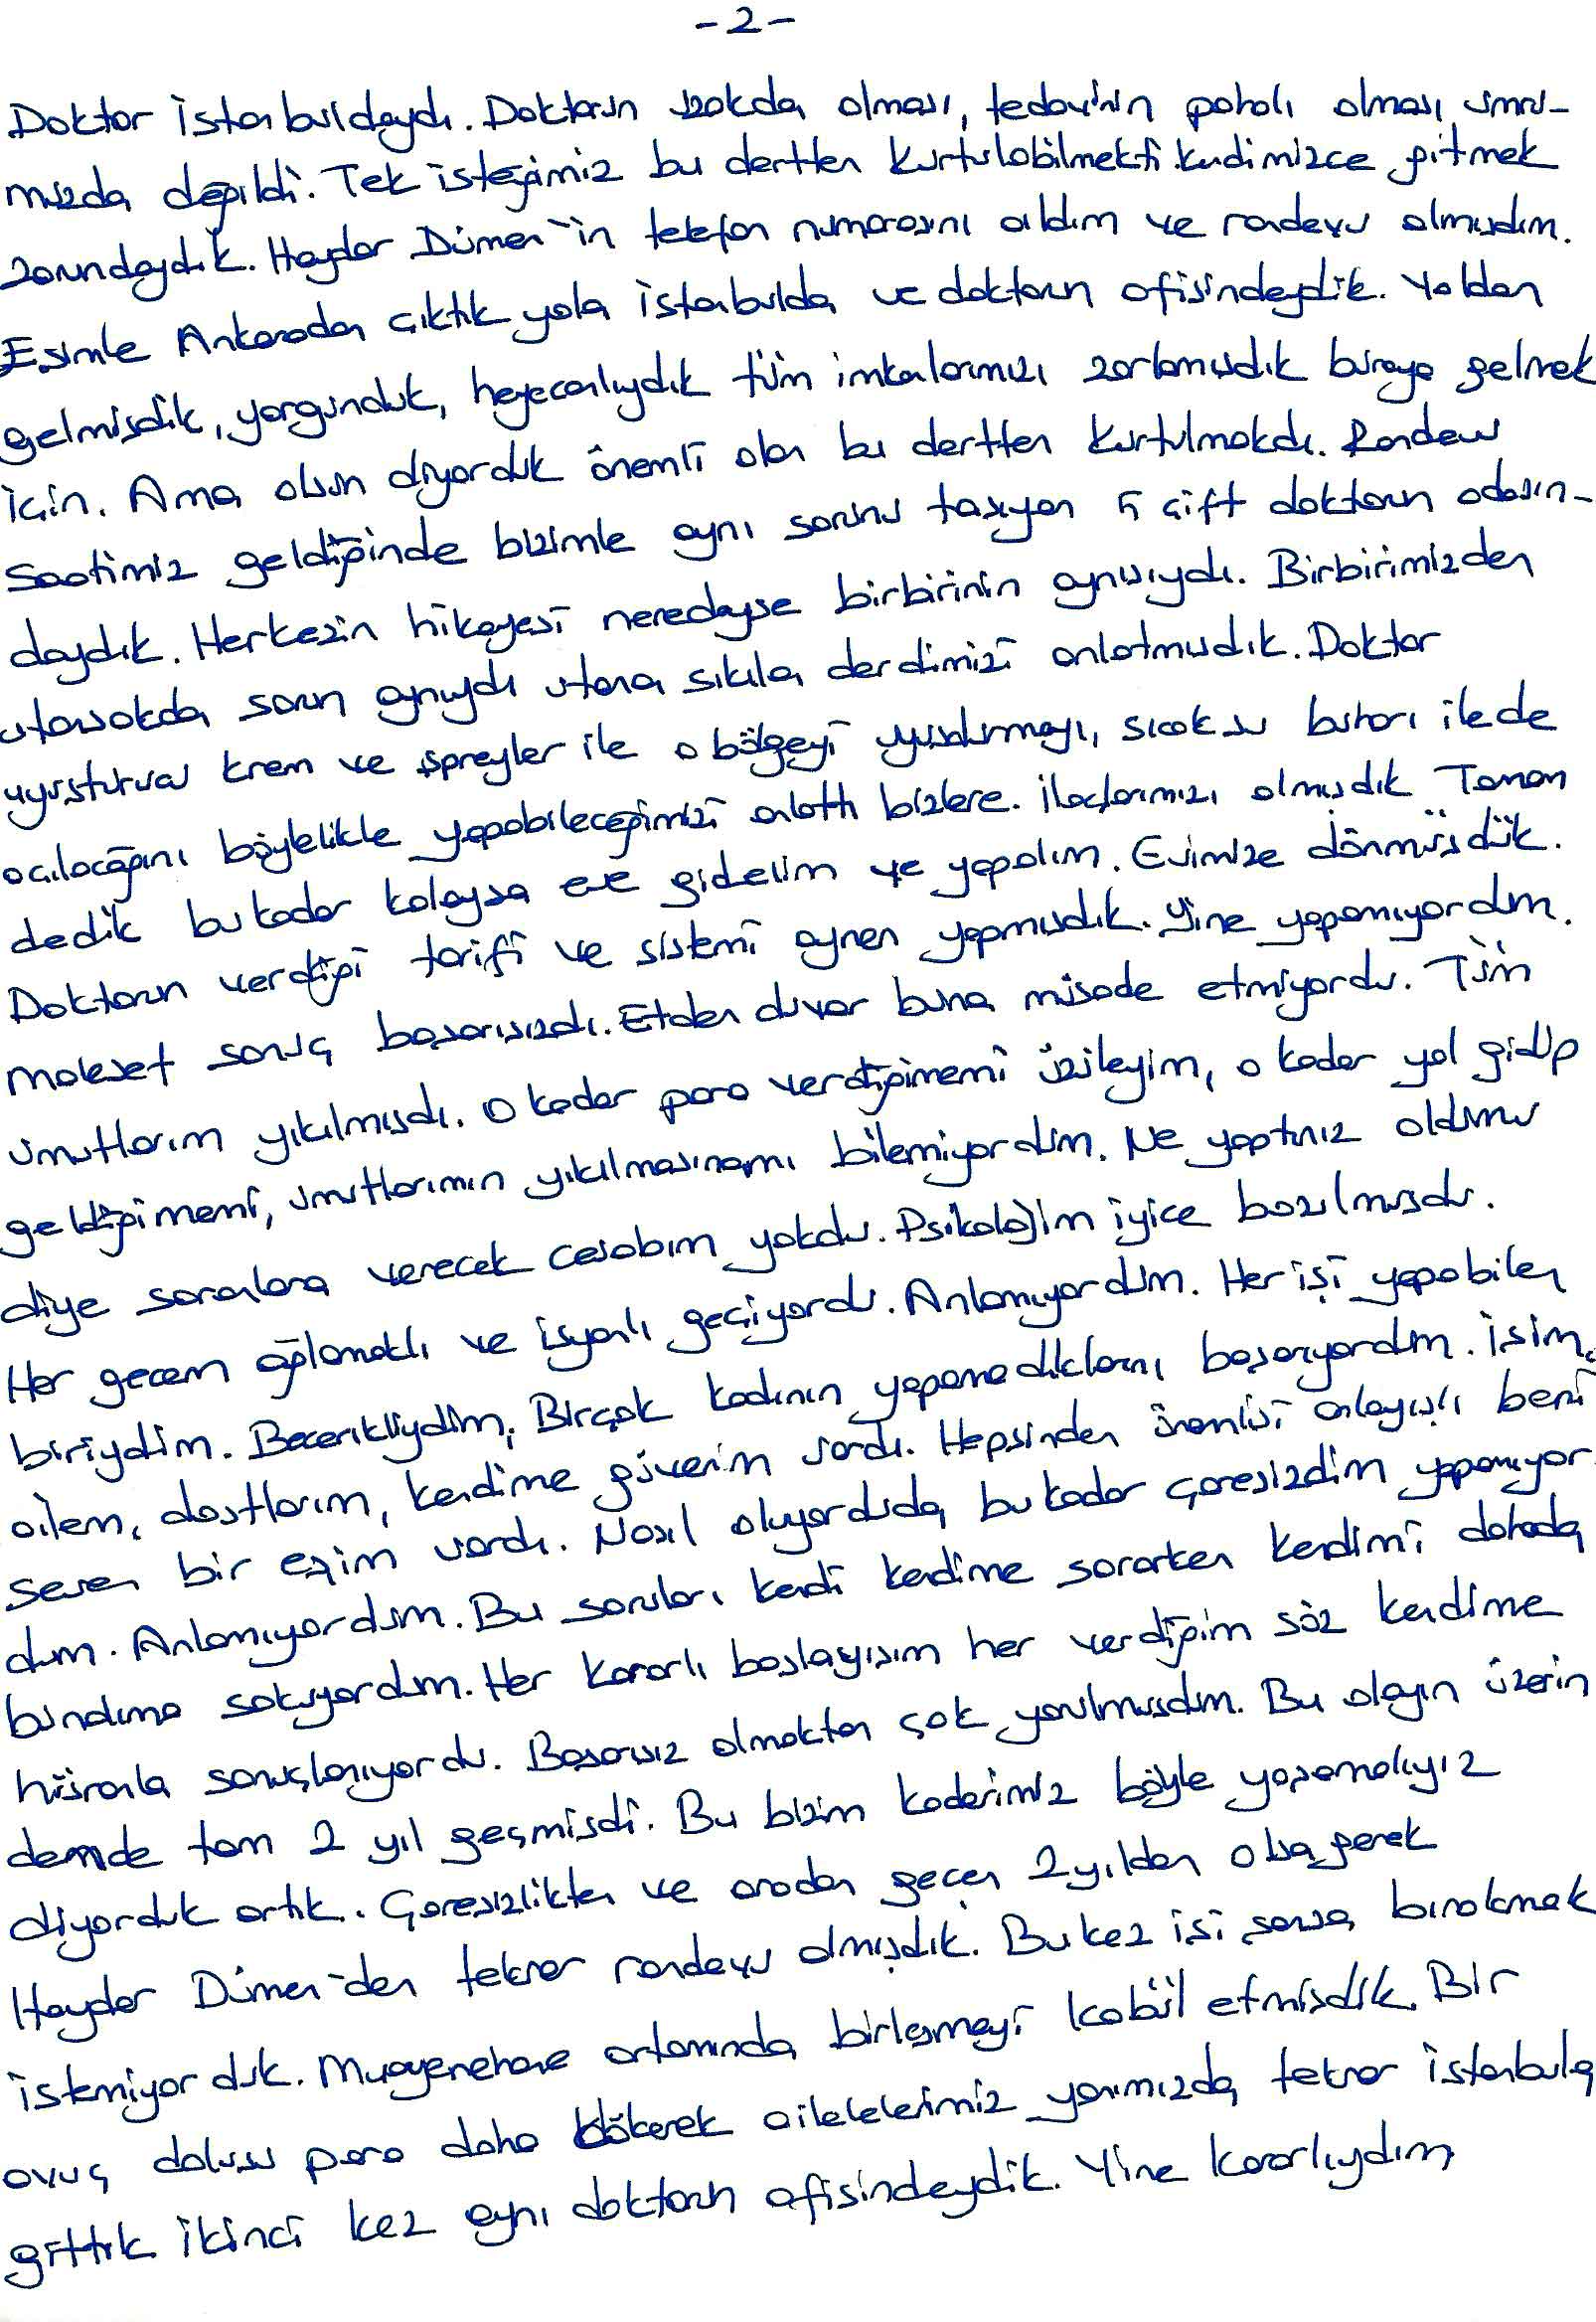 -2-
Doktor İstanbuldaydı. Doktorun uzakda olması, tedavi'nin pahalı olması umru-
muzda değildi. Tek isteğimiz bu dertten kurtulabilmekti. Kendimizce gitmek
zorundaydık. Haydar Dümen'in telefon numarasını aldım ve randevu almışdım.
Eşimle Ankaradan çıktık yola İstanbulda ve doktorun ofisindeydik. Yoldan
gelmişdik, yorgunduk, heyecanlıydık tüm imkanlarımızı zorlamışdık buraya gelmek
için. Ama olsun diyorduk önemli olan bu dertten kurtulmakdı. Randevu
Saatimiz geldiğinde bizimle aynı sorunu taşıyan 5 çift doktorun odasın-
daydık. Herkezin hikayesi neredeyse birbirinin aynısıydı. Birbirimizden
utansakda sorun aynıydı utana sıkıla derdimizi anlatmışdık. Doktor
uyuşturucu krem ve spreyler ile o bölgeyi uyuşdurmayı, sıcak su buharı ilede
açılacağını böylelikle yapabileceğimizi anlattı bizlere. İlaçlarımızı almışdık Tamam
dedik bu kadar kolaysa eve gidelim ve yapalım. Evimize dönmüşdük.
Doktorun verdiği tarifi ve sistemi aynen yapmışdık. Yine yapamıyordum.
Malesef sonuç başarısızdı. Etden duvar buna müsade etmiyordu. Tüm
umutlarım yıkılmışdı. O kadar para verdiğimemi üzüleyim, o kadar yol gidip
geldiğimemi, umutlarımın yıkılmasınamı bilemiyordum. Ne yaptınız oldumu
diye soranlara verecek cevabım yokdu. Psikolojim iyice bozulmuşdu.
Her gecem ağlamaklı ve isyanlı geçiyordu. Anlamıyordum. Her işi yapabilen
biriydim. Becerikliydim, Birçok kadının yapamadıklarını başarıyordum. İşim,
ailem, dostlarım, kendime güvenim vardı. Hepsinden önemlisi anlayışlı beni
seven bir eşim vardı. Nasıl oluyorduda bu kadar çaresizdim yapamıyor
dum. Anlamıyordum. Bu soruları kendi kendime sorarken kendimi dahada
bunalıma sokuyordum. Her kararlı başlayışım her verdiğim söz kendime
hüsranla sonuçlanıyordu. Başarısız olmaktan çok yorulmuşdum. Bu olayın üzerin
demde tam 2 yıl geçmişdi. Bu bizim kaderimiz böyle yaşamalıyız
diyorduk artık. Çaresizlikten ve aradan geçen 2 yıldan olsa gerek
Haydar Dümen'den tekrar randevu almışdık. Bu kez işi şansa bırakmak
istemiyorduk. Muayenehane ortamında birleşmeyi kabül etmişdik. Bir
avuç dolusu para daha dökerek ailelelerimiz yanımızda tekrar İstanbula
gittik ikinci kez aynı doktorun ofisindeydik. Yine kararlıydım